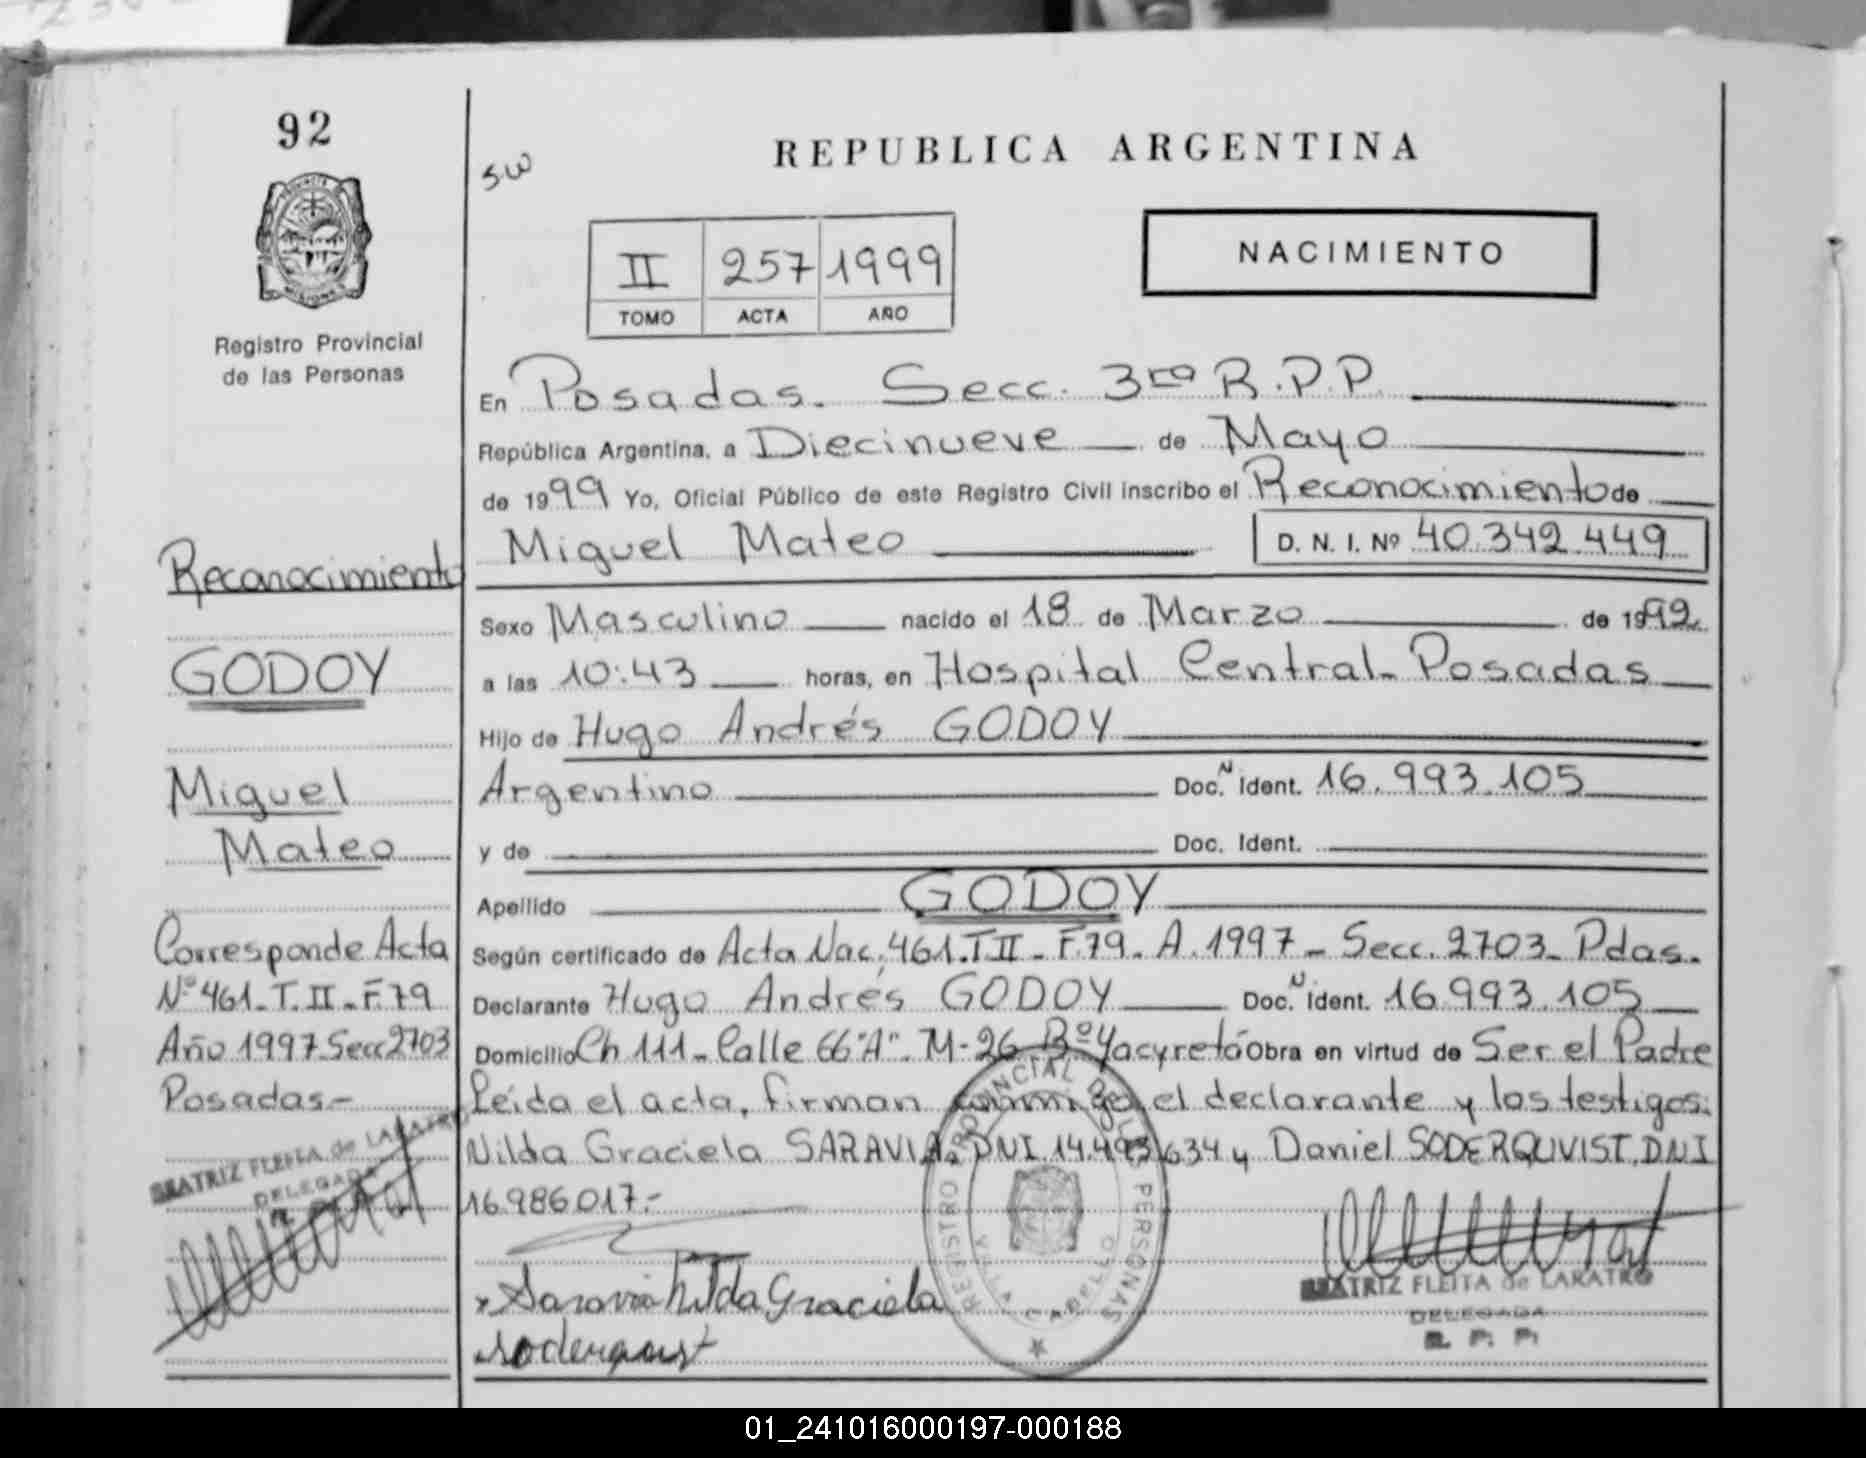 92
Registro Provincial
de las Personas
Reconocimiento
GODOY
Miguel
Mateo
Corresponde Acta
Nº 461-T.II-F.79
Año 1997 Secc 2703
Posadas-
BEATRIZ FLEITA de LAKATRO
DELEGADA
SW
REPUBLICA ARGENTINA
II 257 1999
TOMO ACTA AÑO
NACIMIENTO
En Posadas. Secc. 3ra R.P.P.
República Argentina, a Diecinueve de Mayo
de 1999 Yo, Oficial Público de este Registro Civil inscribo el Reconocimiento de
Miguel Mateo D. N. I. Nº 40.342.449
Sexo Masculino nacido el 18 de Marzo de 1992
a las 10:43 horas, en Hospital Central. Posadas
Hijo de Hugo Andrés GODOY
Argentino Doc. N Ident. 16.993.105
y de Doc. Ident.
Apellido GODOY
Según certificado de Acta Nac. 461.T.II - F.79. A. 1997 - Secc. 2703 - Pdas.
Declarante Hugo Andrés GODOY Doc. N Ident. 16.993.105
Domicilio Ch 111 - Calle 66"A". M-26 Bº Yacyretá Obra en virtud de Ser el Padre
Leída el acta, firman conmigo, el declarante y los testigos:
Nilda Graciela SARAVIA DNI 14.493.634 y Daniel SODERQUVIST, DNI
16.986.017.-
Saravia Nilda Graciela
Soderquist
REGISTRO PROVINCIAL DE LAS PERSONAS
VILLA CABELLO
BEATRIZ FLEITA de LAKATRO
DELEGADA
R. P. P.
01_241016000197-000188